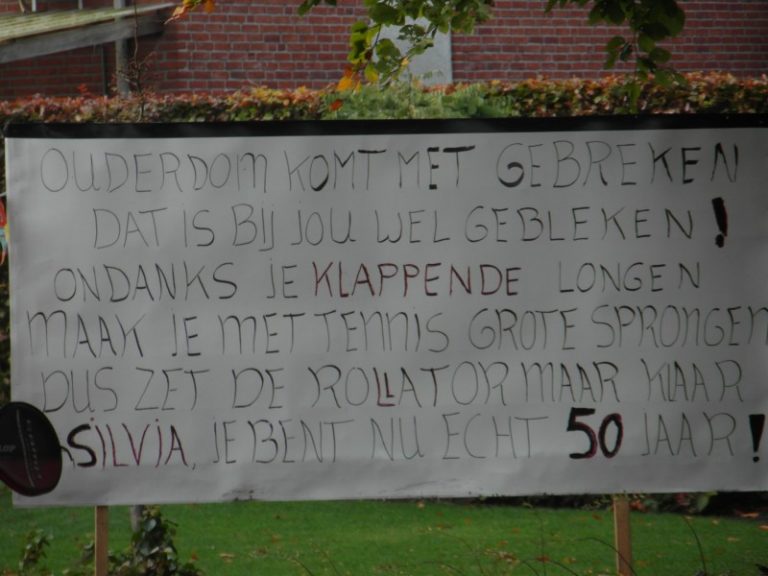 OUDERDOM KOMT MET GEBREKEN
DAT IS BIJ JOU WEL GEBLEKEN!
ONDANKS JE KLAPPENDE LONGEN
MAAK JE MET TENNIS GROTE SPRONGEN
DUS ZET DE ROLLATOR MAAR KLAAR
SILVIA, JE BENT NU ECHT 50 JAAR!